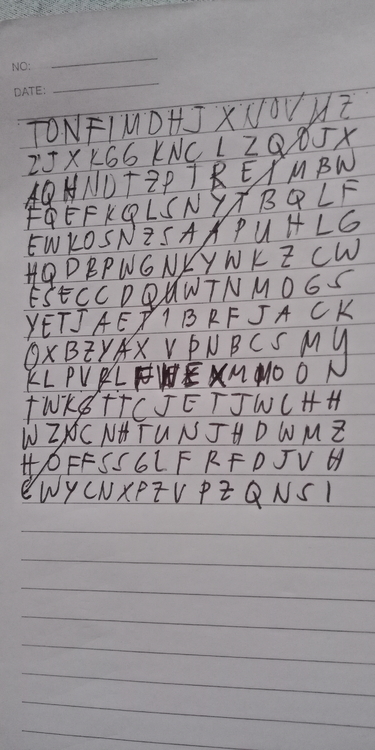 NO:
DATE:
TONFIMDHJXNOVHZ
ZJXKGGKNCLZQOJX
AQHNDTZPTREIMBW
FQEFKQLSNYTBQLF
EWKOSNZSAAPUHLG
HQDBPWGNLYWKZCW
ESECCDQUWTNMOGS
YETJAET1BRFJACK
OXBZYAXVPNBCSMY
KLPVRLFWEXMMOON
TWKGTTCJETJWCHH
WZNCNHTUNJHDWMZ
HOFFSSGLFRFDJVH
EWYCNXPZVPZQNSI